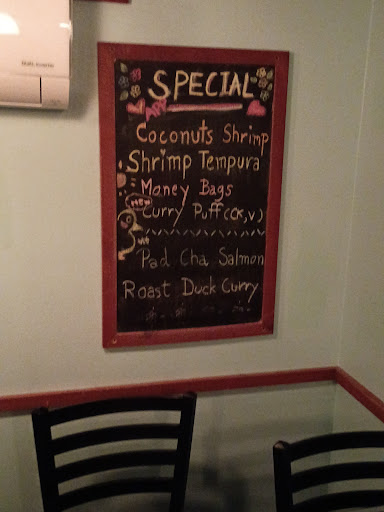 SPECIAL
APP
Coconuts Shrimp
Shrimp Tempura
Money Bags
New
Curry Puff (CK,V)
Pad Cha Salmon
Roast Duck Curry